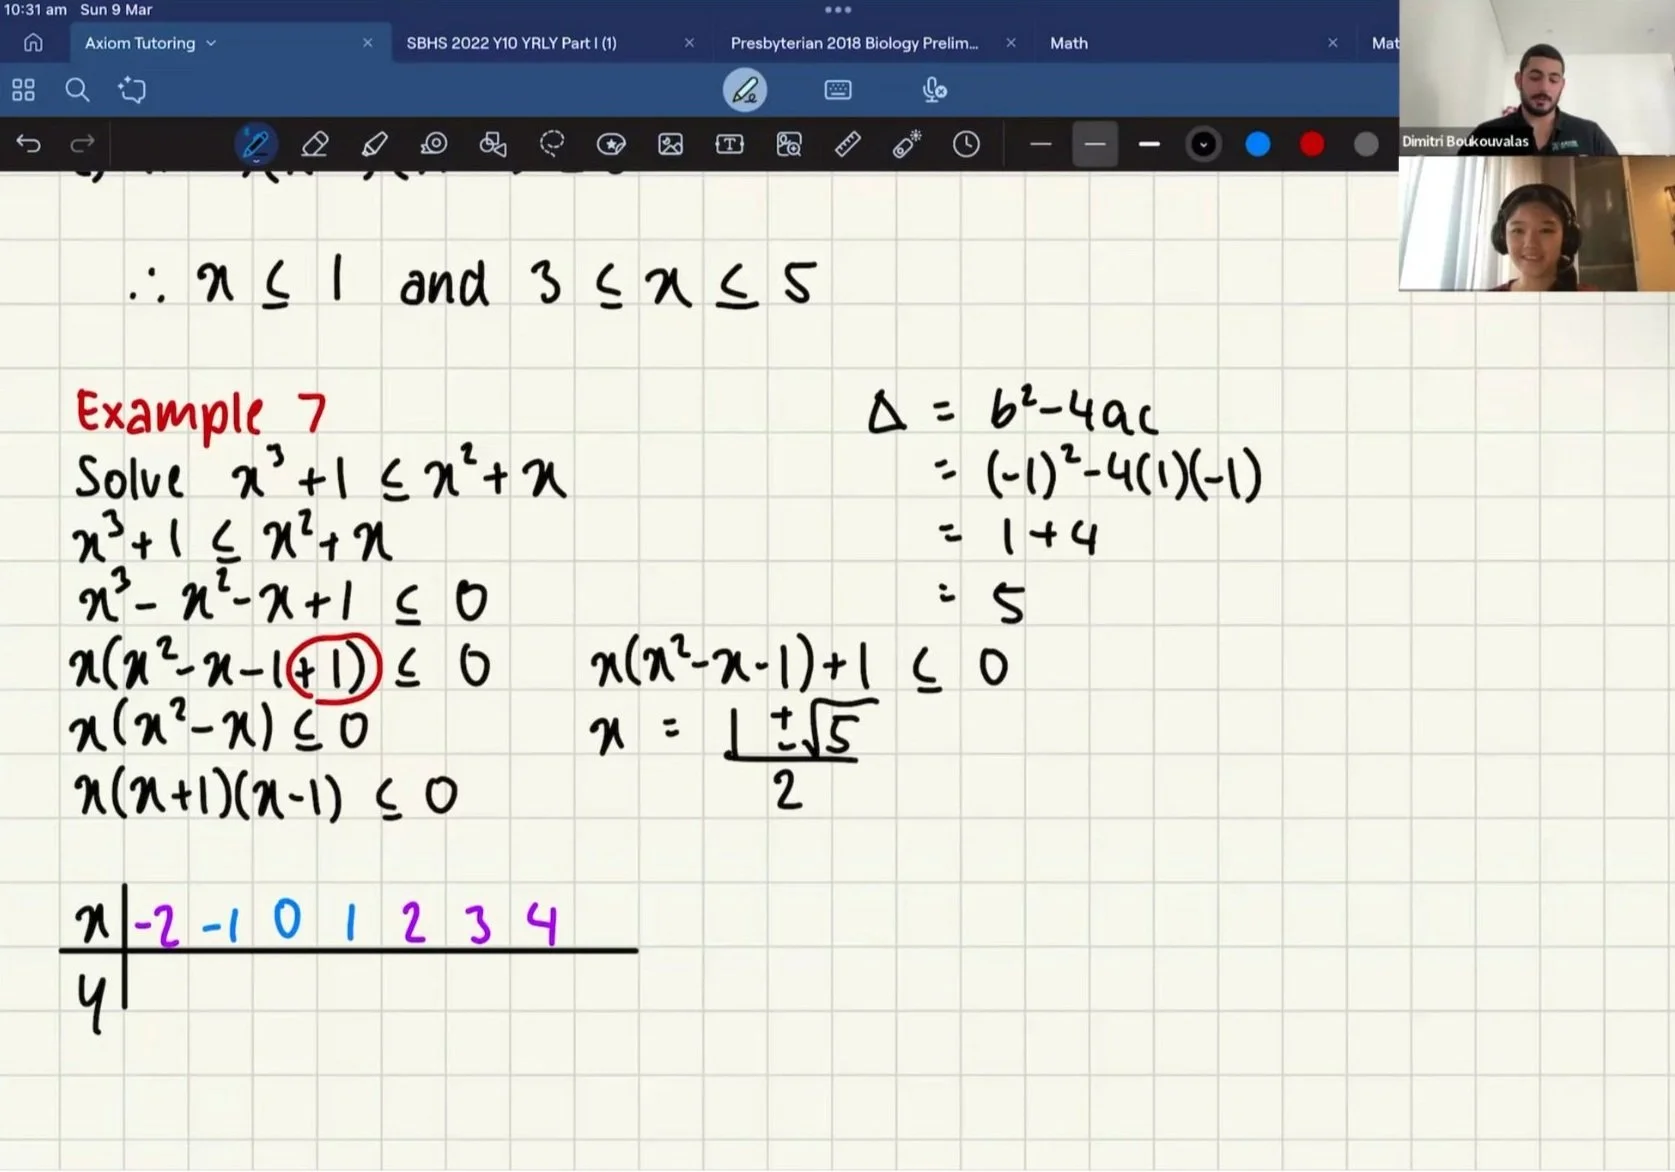 10:31 am Sun 9 Mar
Axiom Tutoring
SBHS 2022 Y10 YRLY Part I (1)
Presbyterian 2018 Biology Prelim...
Math
Mat
Dimitri Boukouvalas
∴ x ≤ 1 and 3 ≤ x ≤ 5
Example 7
Solve x³+1 ≤ x²+x
x³+1 ≤ x²+x
x³-x²-x+1 ≤ 0
x(x²-x-1+1) ≤ 0
x(x²-x) ≤ 0
x(x+1)(x-1) ≤ 0
Δ = b²-4ac
= (-1)²-4(1)(-1)
= 1+4
= 5
x(x²-x-1)+1 ≤ 0
x = 1 ± √5
2
x -2 -1 0 1 2 3 4
y